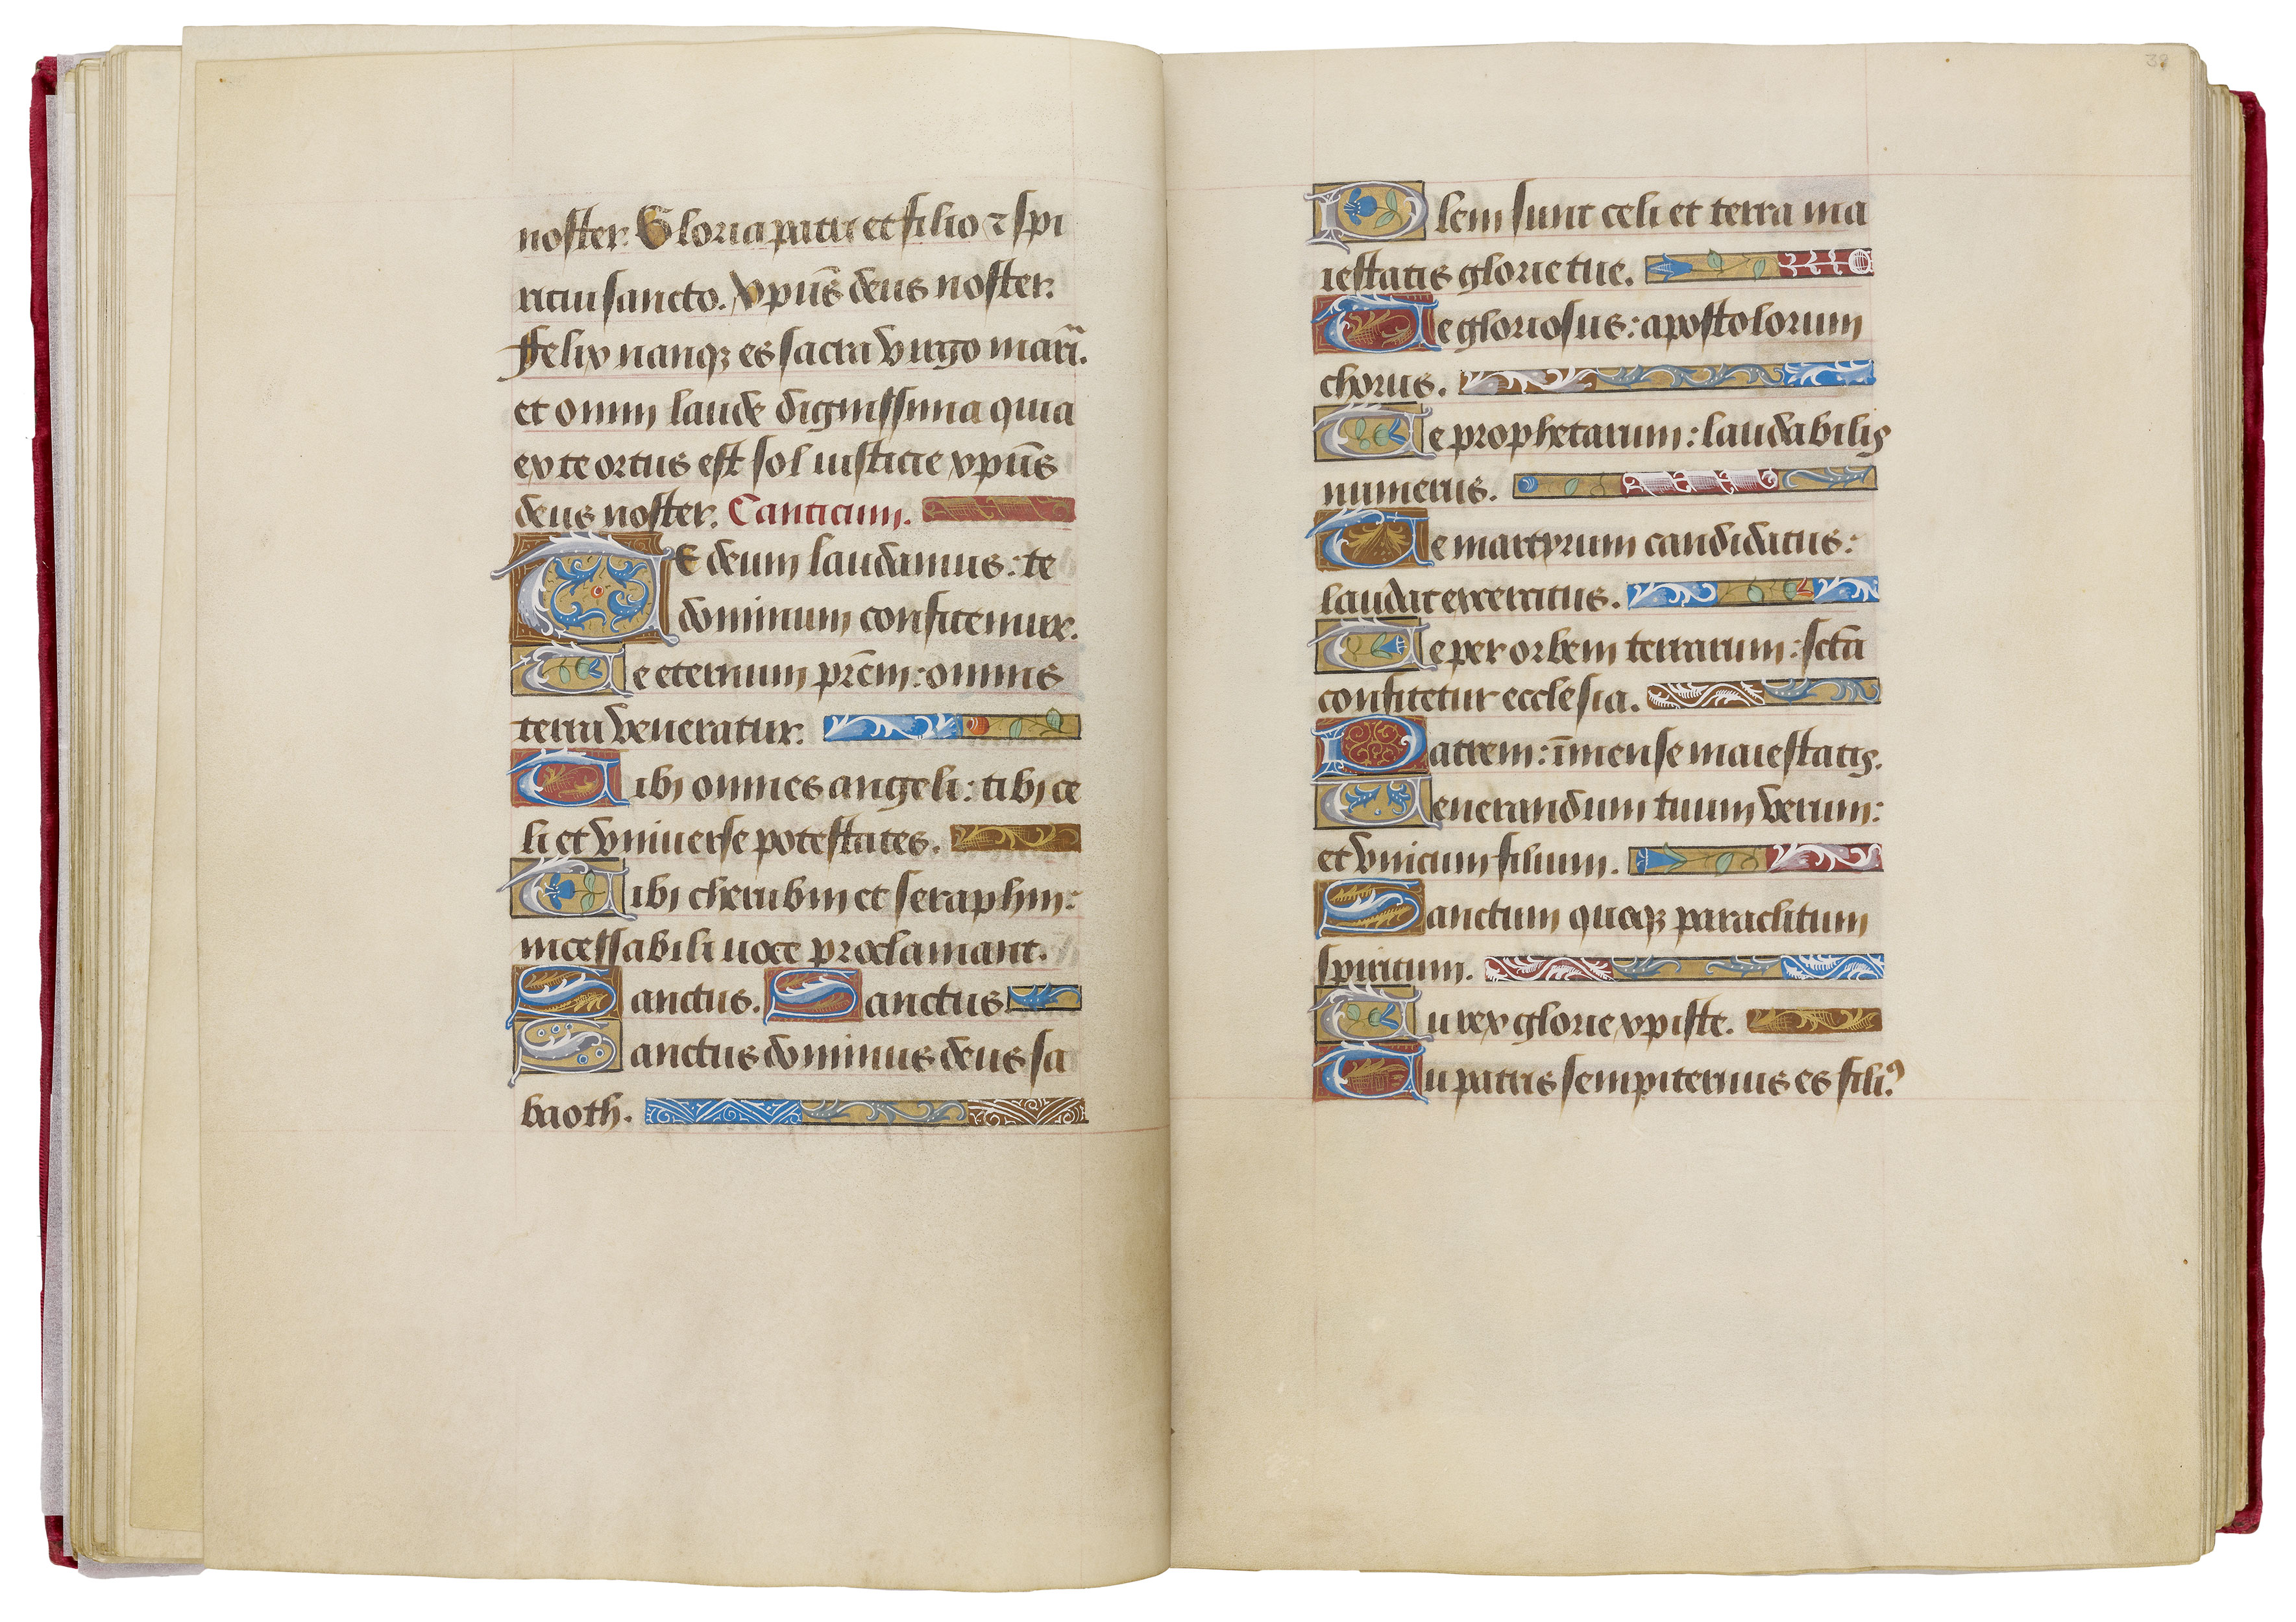 noster. Gloria patri et filio ⁊ spi
ritui sancto. Xpūs deus noster.
Felix nanqꝫ es sacra virgo mari̅.
et omni laude dignissima quia
ex te ortus est sol iusticie xpūs
deus noster. Canticum.
TE deum laudamus: te
dominum confitemur.
Te eternum prēm: omnis
terra veneratur.
Tibi omnes angeli: tibi ce
li et vniuerse potestates.
Tibi cherubin et seraphin:
incessabili uoce proclamant.
Sanctus. Sanctus.
Sanctus dominus deus sa
baoth.
38
Pleni sunt celi et terra ma
iestatis glorie tue.
Te gloriosus: apostolorum
chorus.
Te prophetarum: laudabilis
numerus.
Te martyrum candidatus:
laudat exercitus.
Te per orbem terrarum: sctā
confitetur ecclesia.
Patrem: īmense maiestatis.
Venerandum tuum verum:
et vnicum filium.
Sanctum quoqꝫ paraclitum
spiritum.
Tu rex glorie xpiste.
Tu patris sempiternus es filiꝰ